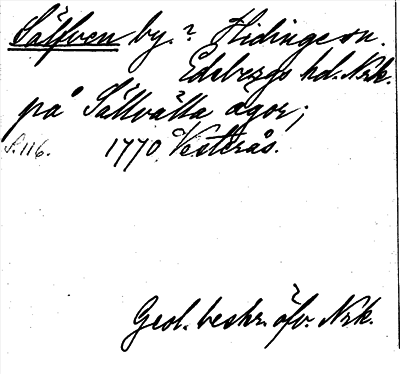 Sälfven by. ? Hidinge sn.
Edsbergs hd. Nrk.
på Sällvätta ägor;
S. 116. 1770, Vesterås.
Geol. beskr. öfv. Nrk.